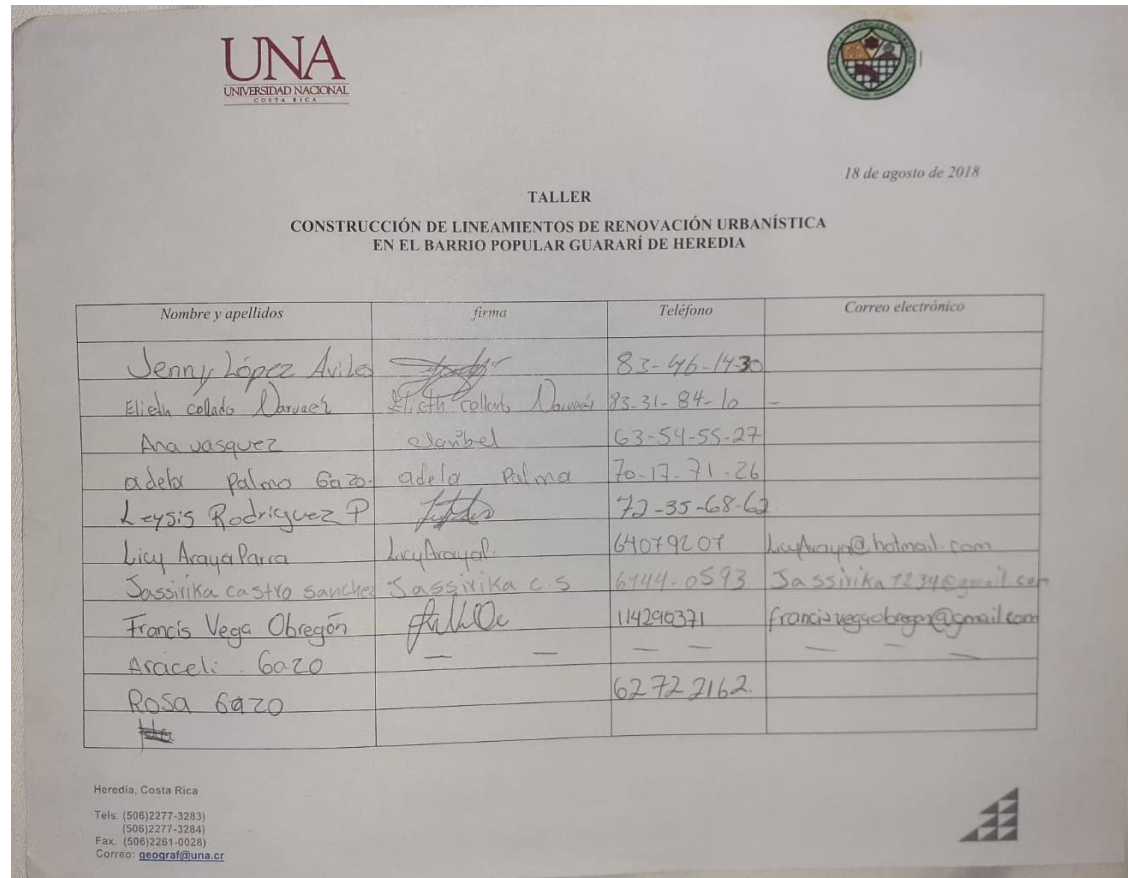 UNA
UNIVERSIDAD NACIONAL
COSTA RICA
18 de agosto de 2018
TALLER
CONSTRUCCIÓN DE LINEAMIENTOS DE RENOVACIÓN URBANÍSTICA
EN EL BARRIO POPULAR GUARARÍ DE HEREDIA
Nombre y apellidos firma Teléfono Correo electrónico
Jenny López Aviles 83-46-1430
Elieth collado Narvaez Elieth collado Narvaez 83-31-84-10 -
Ana vasquez claribel 63-54-55-27
adela palma Gazo. adela Palma 70-17-71-26
Leysis Rodriguez P 72-35-68-62
Licy Araya Parra Licy Araya P. 64079207 LicyAraya@hotmail.com
Jassirika castro sanchez Jassirika c.s 6144-0593 Jassirika1234@gmail.com
Francis Vega Obregón 114290371 francisvegaobregon@gmail.com
Araceli. Gazo — — — — — — —
Rosa Gazo 62722162.
Heredia, Costa Rica
Tels. (506)2277-3283)
(506)2277-3284)
Fax. (506)2261-0028)
Correo: geograf@una.cr